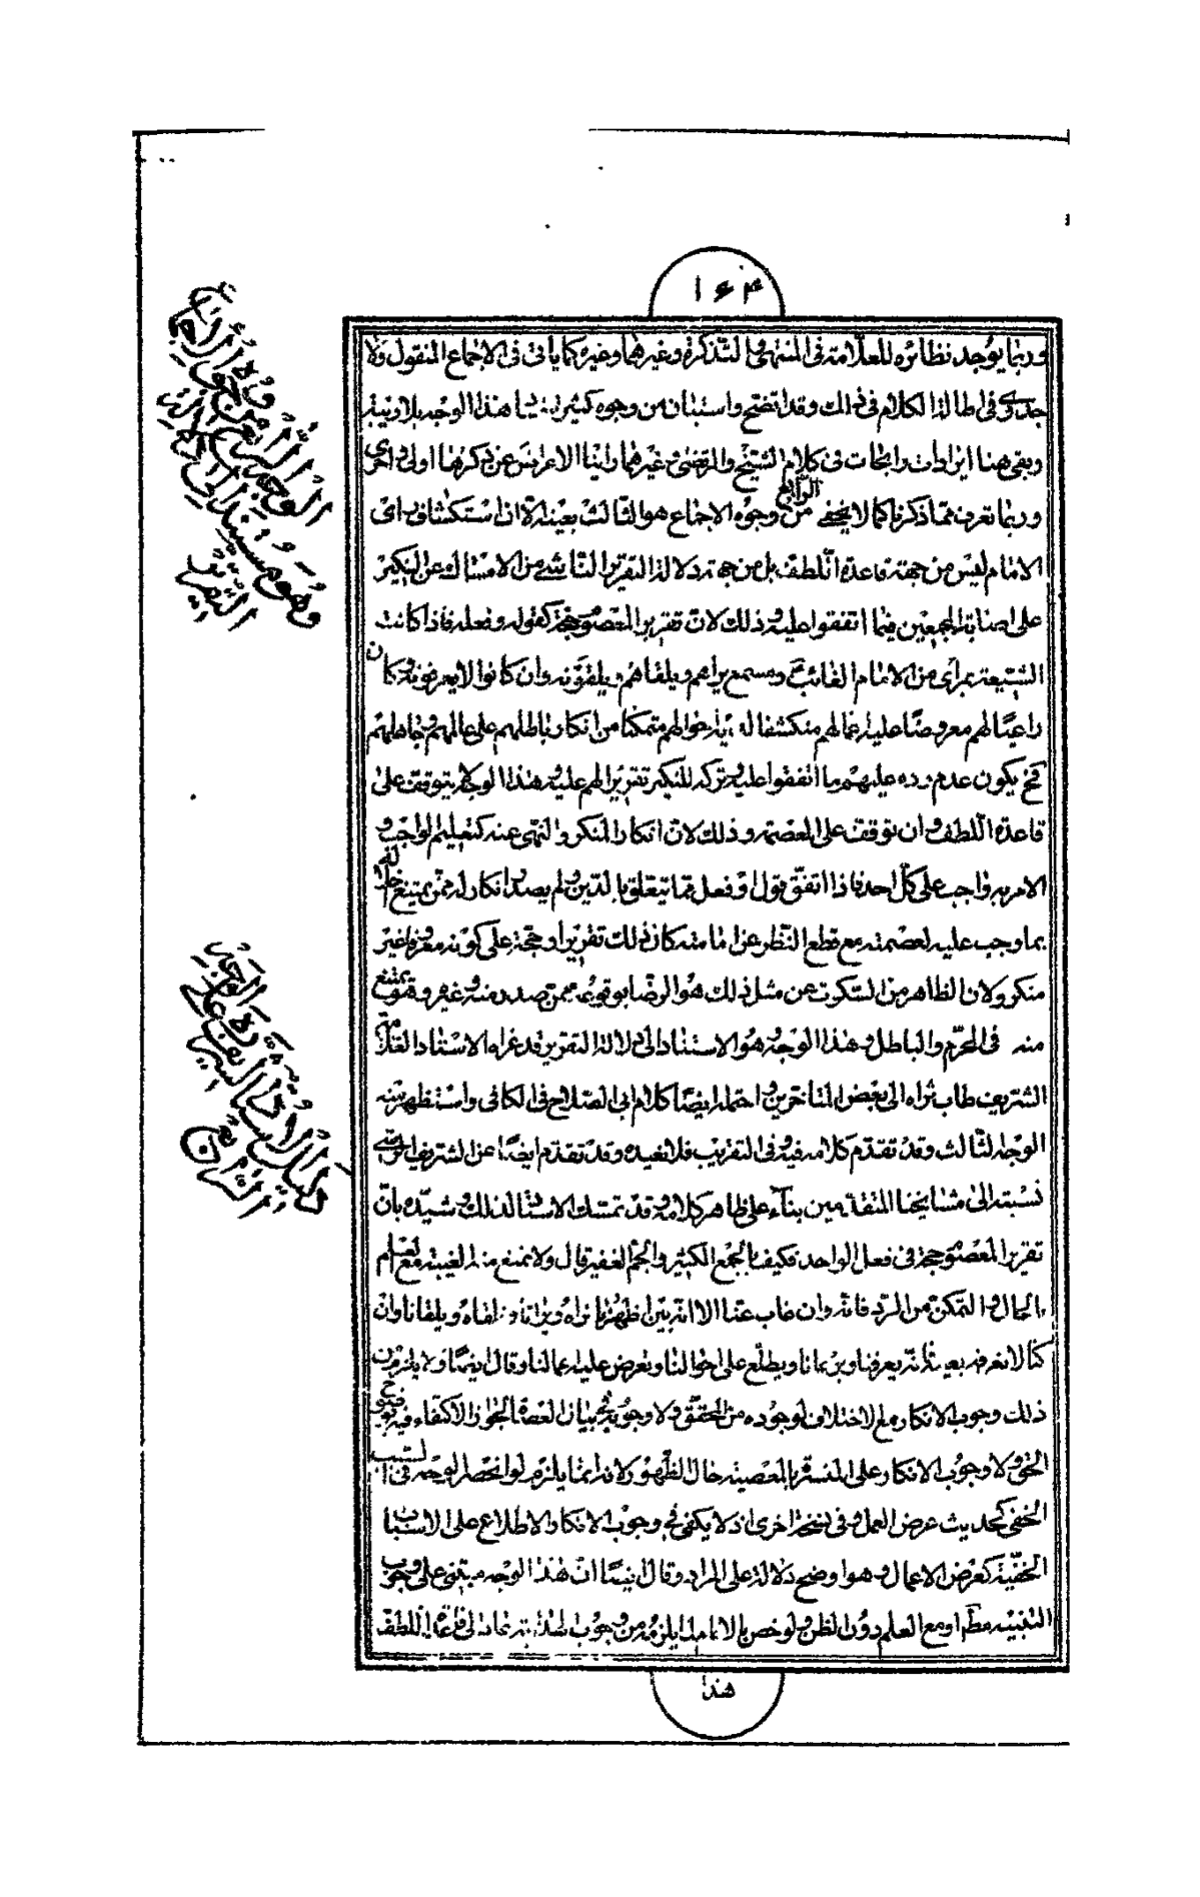 ١٦٤
وربما يوجد نظائره للعلامة فى المنتهى والتذكرة وغيرهما وغيره كما يأتى فى الاجماع المنقول ولا
جدوى فى اطالة الكلام فى ذلك وقد اتضح واستبان من وجوه كثيرة هذا الوجه بلا ريبة
وبقى هنا ايرادات وابحاث فى كلام الشيخ والمرتضى وغيرهما راينا الاعراض عن ذكرها اولى واحرى
وربما تعرف مما ذكرنا كما لا يخفى الرابع من وجوه الاجماع هو الثالث بعينه الا ان استكشاف راى
الامام ليس من جهة قاعدة اللطف بل من جهة دلالة التقرير الناشى من الامساك عن النكير
على اصابة المجمعين فيما اتفقوا عليه وذلك لان تقرير المعصوم حجة كقوله وفعله فاذا كانت
الشيعة بمرأى من الامام الغائب ومسمع يراهم ويلقاهم ويلقونه وان كانوا لا يعرفونه وكان
راعيا لهم معروضا عليه اعمالهم منكشفا له احوالهم متمكنا من انكار باطلهم على عالمهم وجاهلهم
فح يكون عدم رده عليهم ما اتفقوا عليه وتركه للنكير تقريرا لهم عليه وهذا الوجه لا يتوقف على
قاعدة اللطف وان توقف على العصمة وذلك لان انكار المنكر والنهى عنه كتعليم الواجب و
الامر به واجب على كل احد فاذا اتفق قول او فعل مما يتعلق بالدين ولم يصدر انكار له ممن يمتنع اخلاله
بما وجب عليه لعصمته مع قطع النظر عن امامته كان ذلك تقريرا وحجة على كونه معروفا غير
منكر ولان الظاهر من السكوت عن مثل ذلك هو الرضا بوقوعه ممن صدر منه وغيره وهو ممتنع
منه فى المحرم والباطل وهذا الوجه وهو الاستناد الى دلالة التقرير قد عزاه الاستاد العلامة
الشريف طاب ثراه الى بعض المتاخرين واحتمله ايضا كلام ابى الصلاح فى الكافى واستظهر منه
الوجه الثالث وقد تقدم كلامه فيه وفى التقريب فلا نعيده وقد تقدم ايضا عن الشريف الرضى
نسبته الى مشايخنا المتقدمين بناء على ظاهر كلامه وقد تمسك الاستاد لذلك وشيده بان
تقرير المعصوم حجة فى فعل الواحد فكيف بالجمع الكثير والجم الغفير قال ولا تمنع منه الغيبة مع العلم
بالحال والتمكن من الرد فانه وان غاب عنا الا انه بين اظهرنا نراه ويرانا ونلقاه ويلقانا وان
كنا لا نعرفه بعينه فانه يعرفنا ويرعانا ويطلع على احوالنا وتعرض عليه اعمالنا وقال ايضا ولا يلزم من
ذلك وجوب الانكار مع الاختلاف لوجوده من المحقق ولا وجوبه ح ببيان لعصمة لجواز الاكتفاء فيه بوضوح
الحق ولا وجوب الانكار على المتستر بالمعصية حال الظهور لانه انما يلزم لو انحصر الوجه فى السبب
الخفى كحديث عرض العمل وفى نسخة اخرى اذ لا يكفى فى وجوب الانكار الاطلاع على الاسباب
الخفية كعرض الاعمال وهو اوضح دلالة على المراد وقال ايضا ان هذا الوجه مبتنى على وجوب
التنبيه مطلقا او مع العلم دون الظن ولو خص بالامام لما يلزمه من وجوب الهداية رجع الى قاعدة اللطف
هذا
الوجه الرابع من وجوه الاجماع
وهو مستند الى
التقرير